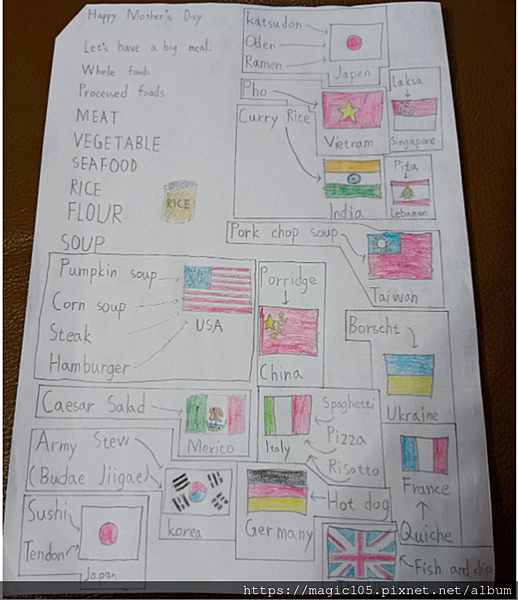 Happy Mother's Day
Let's have a big meal.
Whole foods
Processed foods
MEAT
VEGETABLE
SEAFOOD
RICE
FLOUR
SOUP
RICE
Katsudon
Oden
Ramen
Japen
Pho
Vietnam
Laksa
Singapore
Curry Rice
India
Pita
Lebanon
Pork chop soup
Taiwan
Pumpkin soup
Corn soup
Steak
Hamburger
USA
Porridge
China
Borscht
Ukraine
Caesar Salad
Mexico
Italy
Spaghetti
Pizza
Risotto
Army Stew
(Budae Jiigae)
Korea
Germany
Hot dog
France
Quiche
Sushi
Tendon
Japan
Fish and chips
https://magic105.pixnet.net/album